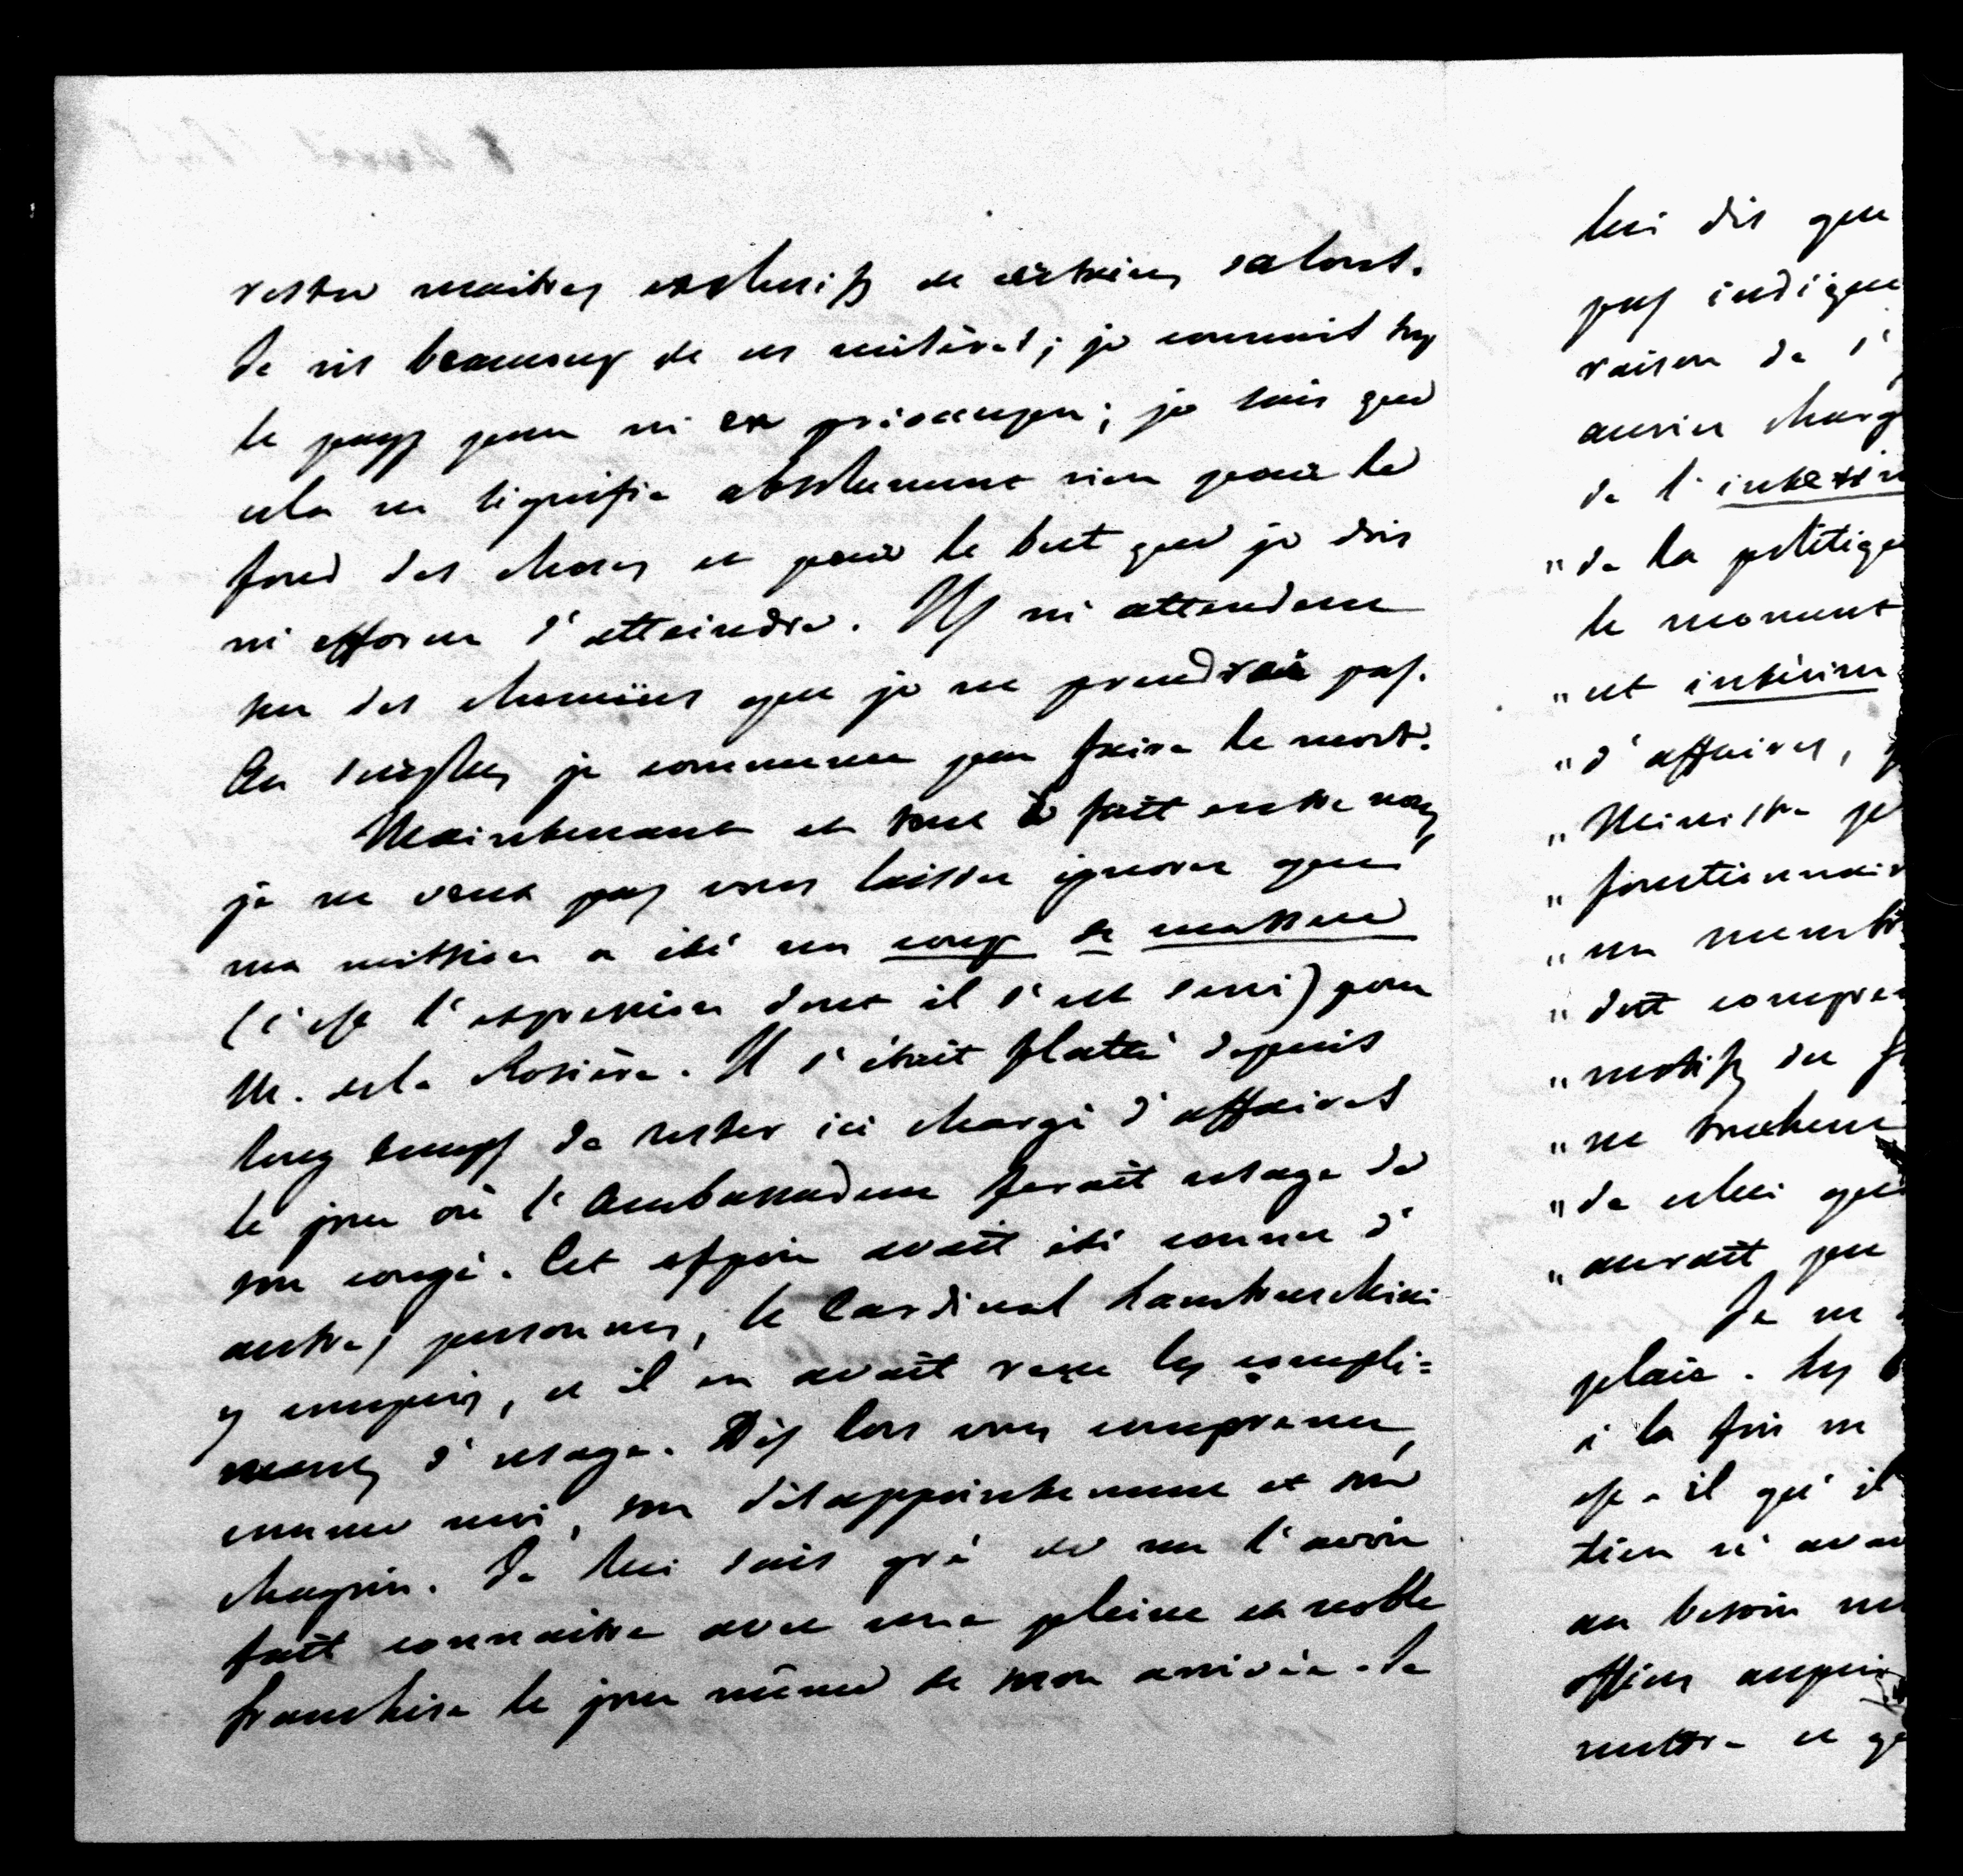 rester maitres exclusifs de certains salons.
Je ris beaucoup de ces misères; je connais trop
le pays pour m'en préoccuper; je sais que
cela ne signifie absolument rien pour le
fond des choses et pour le but que je dois
m'efforcer d'atteindre. Ils m'attendent
sur des chemins que je ne prendrai pas.
Au surplus je commence par faire le mort.
Maintenant et tout à fait entre nous,
je ne veux pas vous laisser ignorer que
ma mission a été un coup de massue
(c'est l'expression dont il s'est servi) pour
M. de la Rosière. Il s'était flatté depuis
long temps de rester ici chargé d'affaires
le jour où l'Ambassadeur ferait usage de
son congé. Cet espoir avait été connu d'
autres personnes, le Cardinal Lambruschini
y compris, et il en avait reçu les compli=
ments d'usage. Dès lors vous comprenez,
comme moi, son désappointement et son
chagrin. Je lui sais gré de me l'avoir
fait connaitre avec une pleine et noble
franchise le jour même de mon arrivée. Je
lui dis que
pas indigne
raison de l'
aurier charg
de l'intérim
"de la politique
le moment
"est intérim
"d'affaires,
"Ministre
"fonctionnair
"un membre
"doit compren
"motifs du
"ne touchent
"de celui que
"aurait pu
Je ne
plais. Les
à la fin
est-il qu'il
tien n'avai
au besoin
offices auprès
mettre et